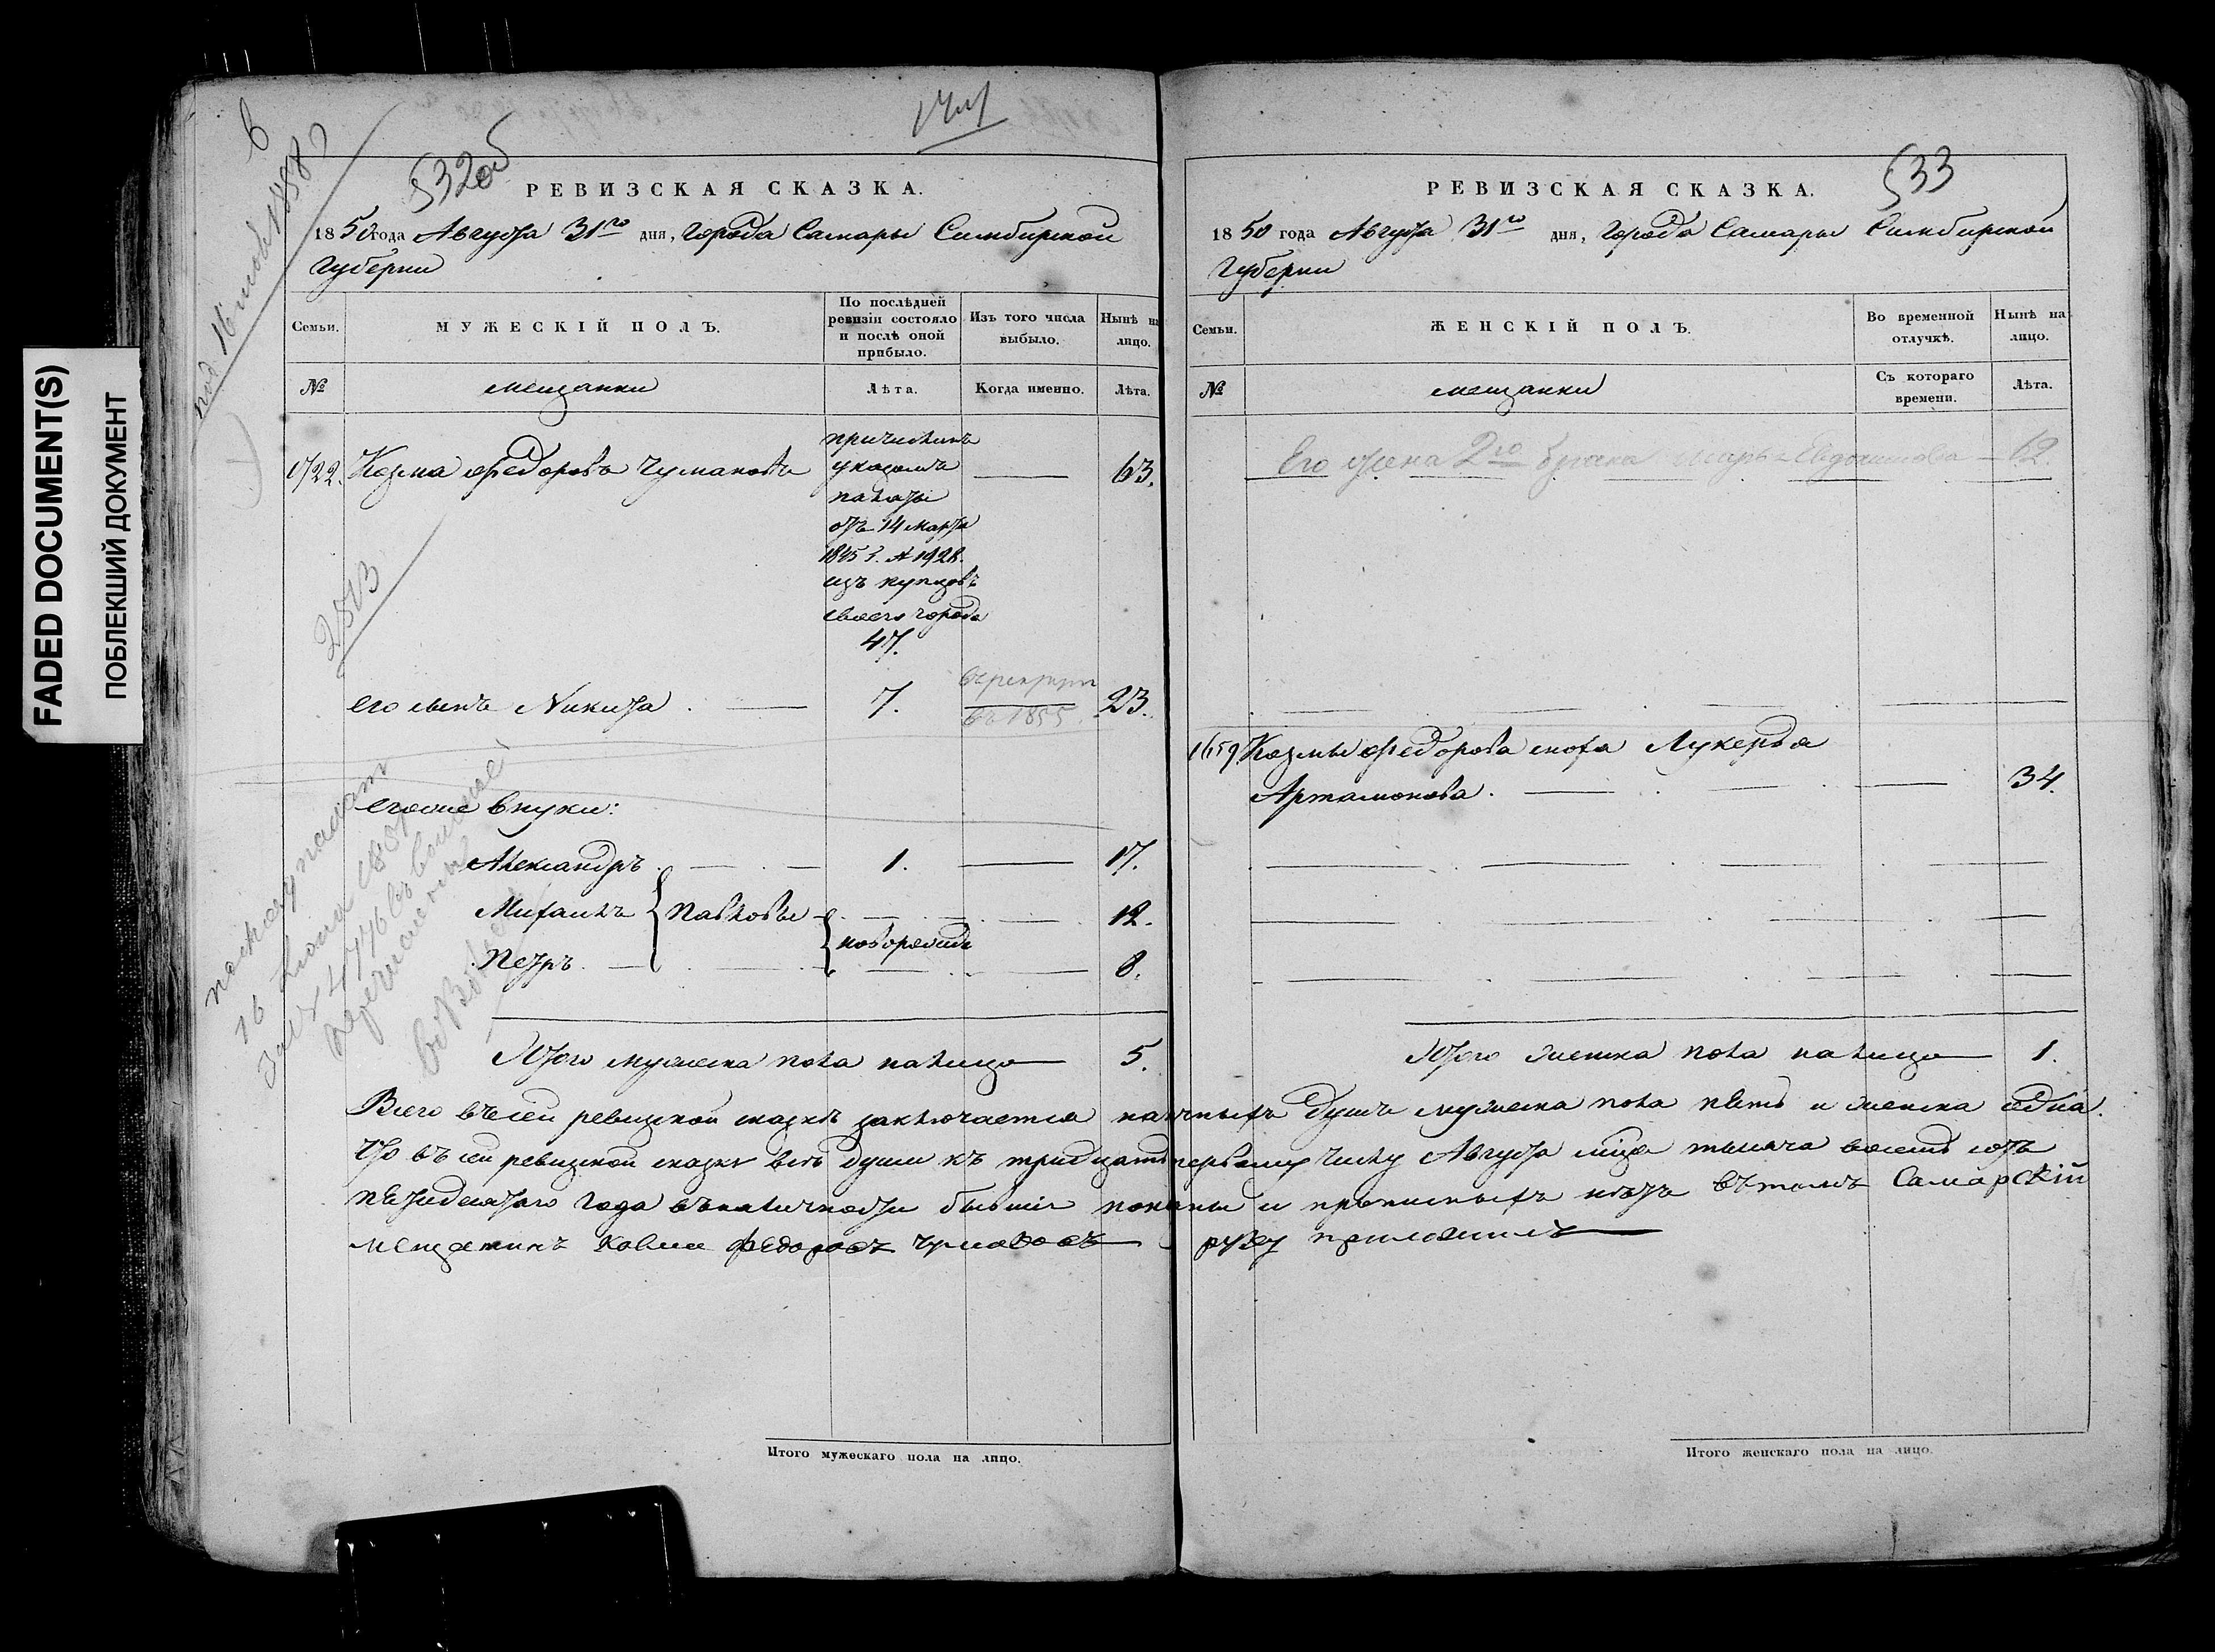 FADED DOCUMENT(S)
ПОБЛЕКШИЙ ДОКУМЕНТ
532об
РЕВИЗСКАЯ СКАЗКА.
1850 года Августа 31го дня, Города Самары Симбирской
Губернии
Семьи.
МУЖЕСКІЙ ПОЛЪ.
По послѣдней
ревизіи состояло
и послѣ оной
прибыло.
Изъ того числа
выбыло.
Нынѣ на
лицо.
№
мещанки
Лѣта.
Когда именно.
Лѣта.
1722. Козма Федоровъ Чумаковъ
причисленъ
указомъ
палаты
отъ 14 марта
1845 г. № 1928.
изъ купцовъ
своего города
47.
63.
2513
его сынъ Никита 7. 23.
въ рекруты
въ 1855.
его же внуки:
Александръ 1. 17.
Михаилъ Павловы 12.
новорожден
Петръ 8.
Итого мужеска пола налицо 5.
533
РЕВИЗСКАЯ СКАЗКА.
1850 года Августа 31го дня, Города Самары Симбирской
Губернии
Семьи.
ЖЕНСКІЙ ПОЛЪ.
Во временной
отлучкѣ.
Нынѣ на
лицо.
№
мещанки
Съ котораго
времени.
Лѣта.
Его жена 2го брака Марья Евдокимова 62.
1659. Козмы Федорова сноха Лукерья
Артамонова. 34.
Итого женска пола налицо 1.
Всего въ сей ревизской сказкѣ заключается наличныхъ душъ мужеска пола пять и женска одна.
Что въ сей ревизской сказке всѣ души къ тридцать первому числу Августа мца тысяча восемь сотъ
пятидесятаго года въ наличности бывшіе показаны и прописныхъ нѣтъ въ томъ Самарскій
мещанинъ Козма Федоровъ Чумаковъ руку приложилъ
Итого мужескаго пола на лицо.
Итого женскаго пола на лицо.